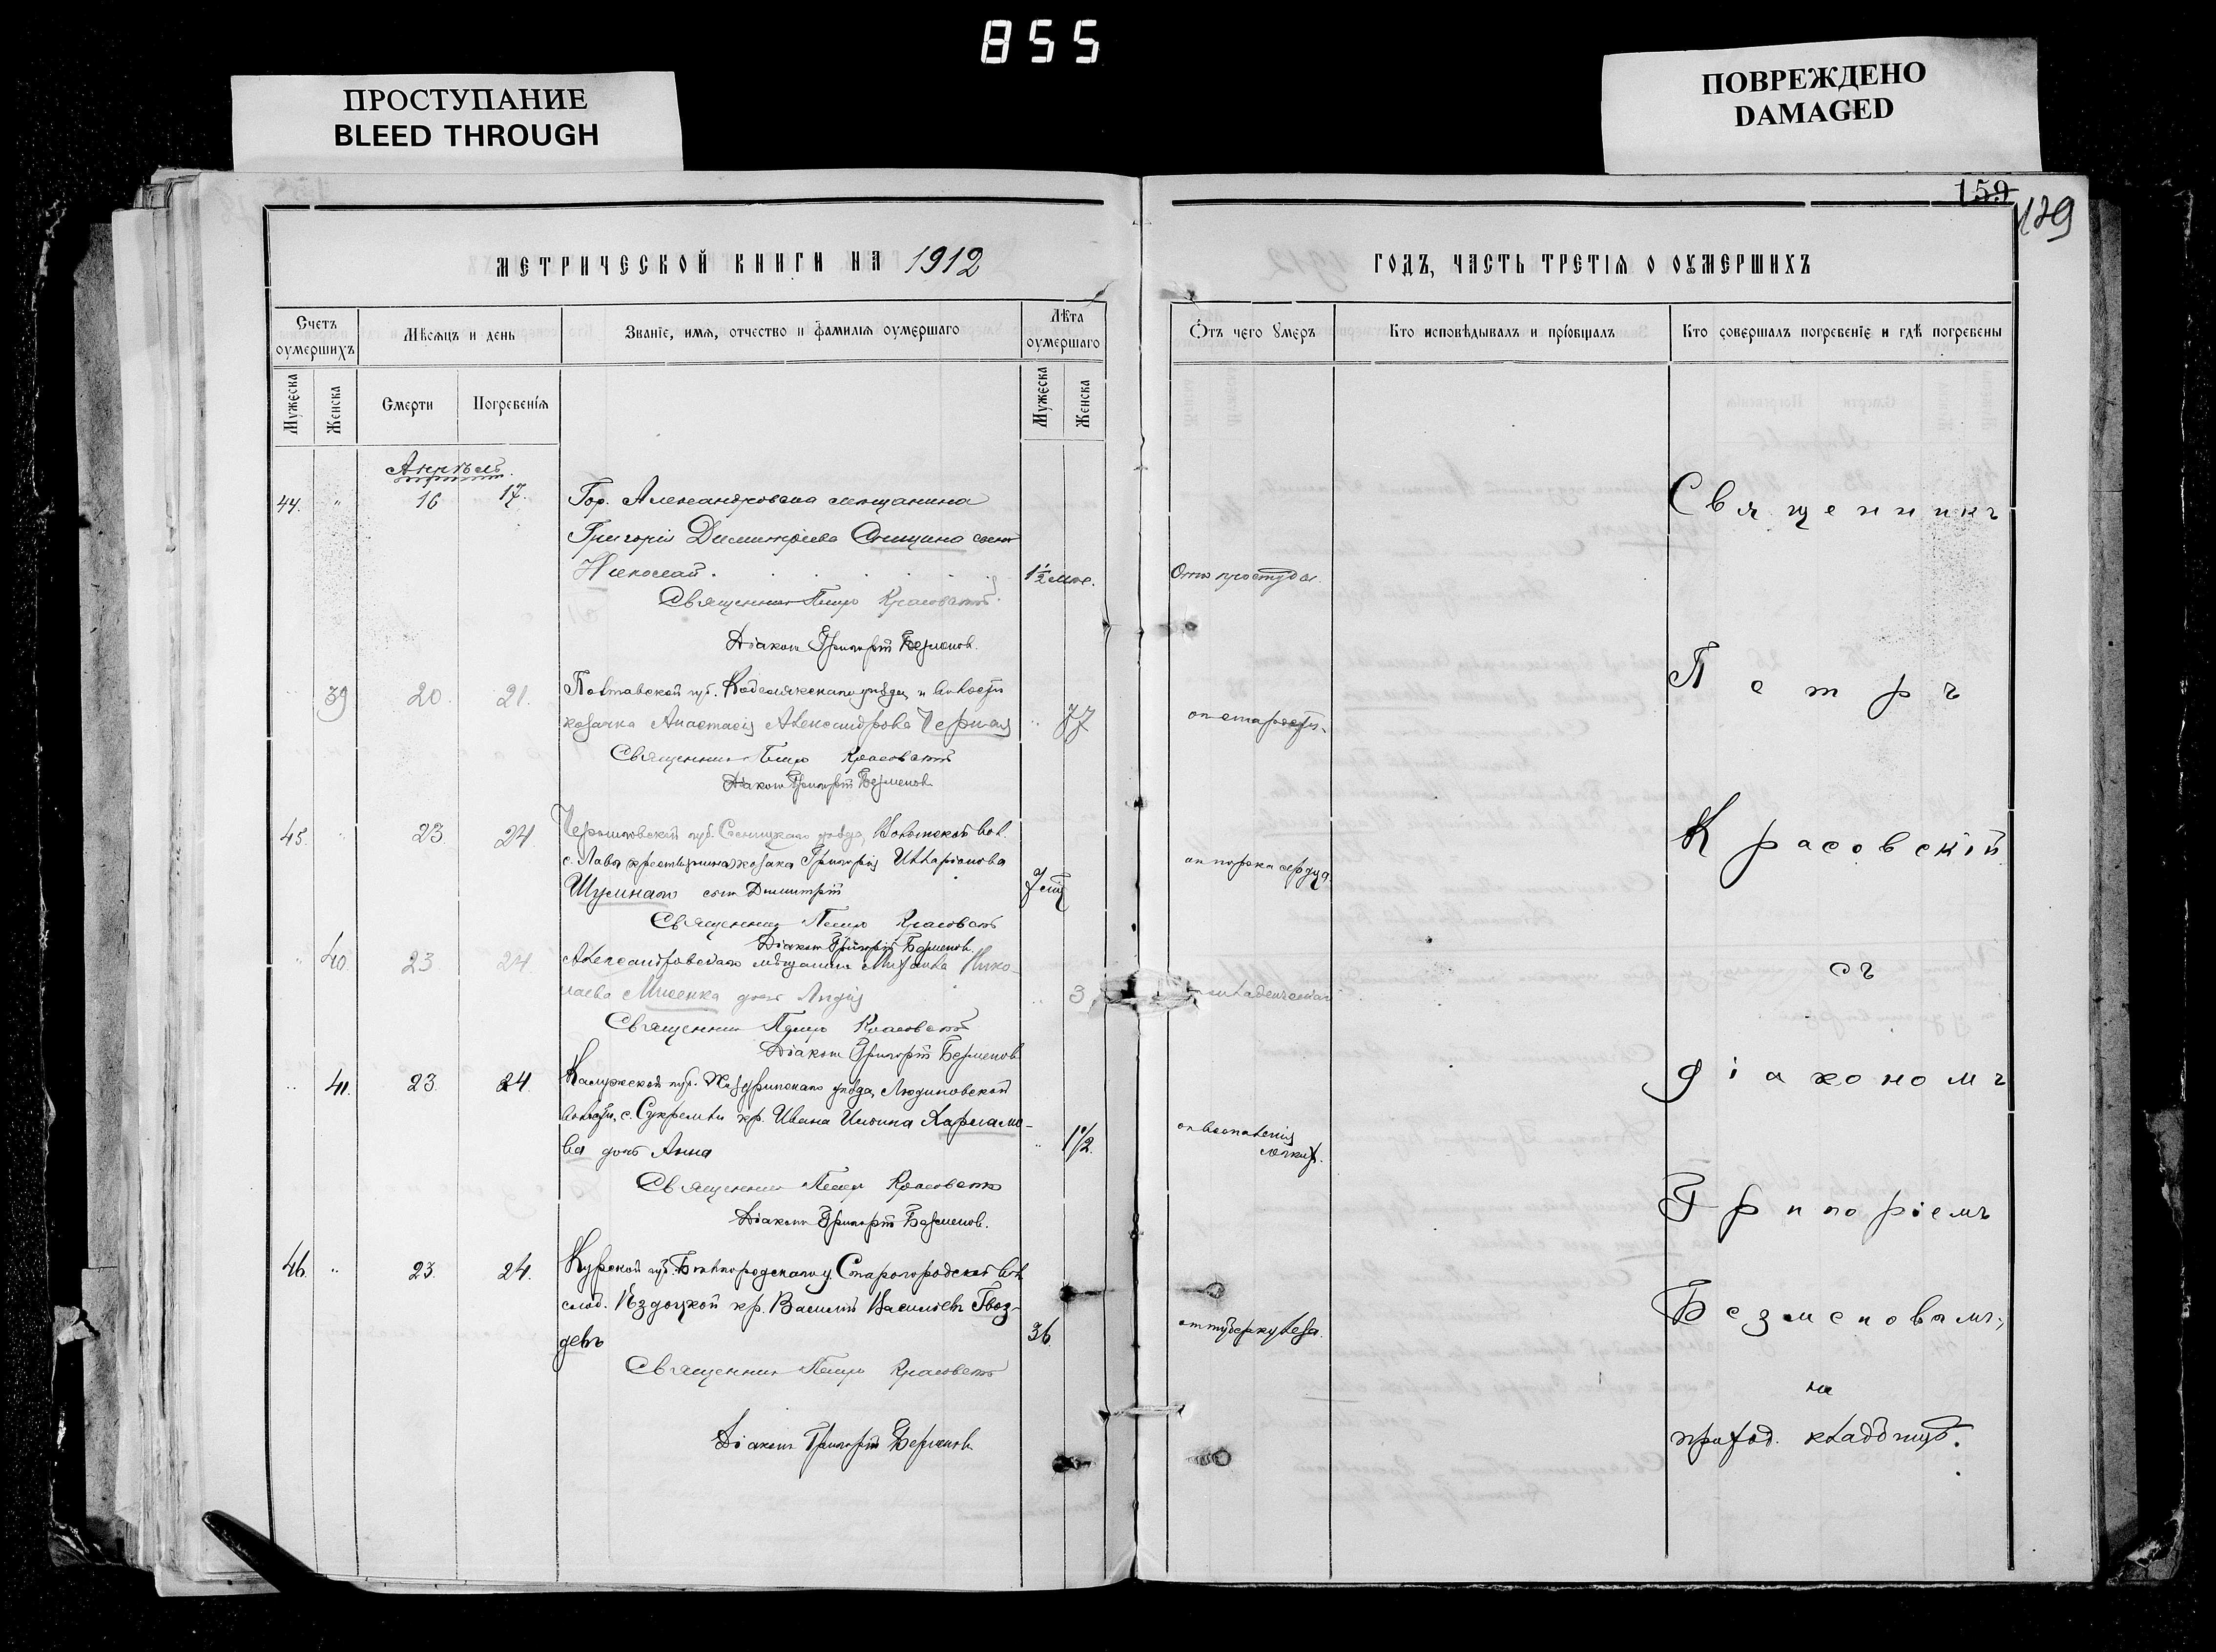 855
ПРОСТУПАНИЕ
BLEED THROUGH
ПОВРЕЖДЕНО
DAMAGED
159
129
МЕТРИЧЕСКОЙ КНИГИ НА 1912
ГОДЪ, ЧАСТЬ ТРЕТІЯ О ОУМЕРШИХЪ
Счетъ оумершихъ
Мѣсяцъ и день
Званіе, имя, отчество и фамилія оумершаго
Лѣта оумершаго
Отъ чего умеръ
Кто исповѣдывалъ и пріобщалъ
Кто совершалъ погребеніе и гдѣ погребены
Мужеска
Женска
Смерти
Погребенія
Мужеска
Женска
Апрѣль.
44. " 16 17. Гор. Александровска мѣщанина
Григорія Димитріева сынъ
Николай. 1½ мѣс. Отъ простуды.
Священникъ Петръ Красовскій
Діаконъ Григорій Безменовъ.
39 20. 21. Полтавской губ. уѣзда и волости
козачка Анастасія Александрова Черная " 77 от старости.
Священникъ Петръ Красовскій
Діаконъ Григорій Безменовъ
45. " 23. 24. Черниговской губ. Сосницкаго уѣзда, Волынской вол.
с. козака Григорія Илларіонова
сынъ Димитрій 7 от порока сердца.
Священникъ Петръ Красовскій
Діаконъ Григорій Безменовъ
" 40. 23. 24 Александровскаго мѣщанина Михаила Нико-
лаева Мисенка дочь Лидія " 3
Священникъ Петръ Красовскій
Діаконъ Григорій Безменовъ
" 41. 23. 24. Калужской губ. уѣзда, Людиновской
волости, с. Сукремли кр. Ивана Ильина Харламо-
ва дочь Анна " 1½. от воспаленія
легких.
Священникъ Петръ Красовскій
Діаконъ Григорій Безменовъ.
46. " 23. 24. Курской губ. Бѣлгородскаго у. Старогородской вол.
слоб. Ѣздоцкой кр. Василій Васильевъ Гвоз-
девъ 36. от туберкулеза.
Священникъ Петръ Красовскій
Діаконъ Григорій Безменовъ
Священникъ
Петръ
Красовскій
съ
діакономъ
Григоріемъ
Безменовымъ,
на
приход. кладбищѣ.